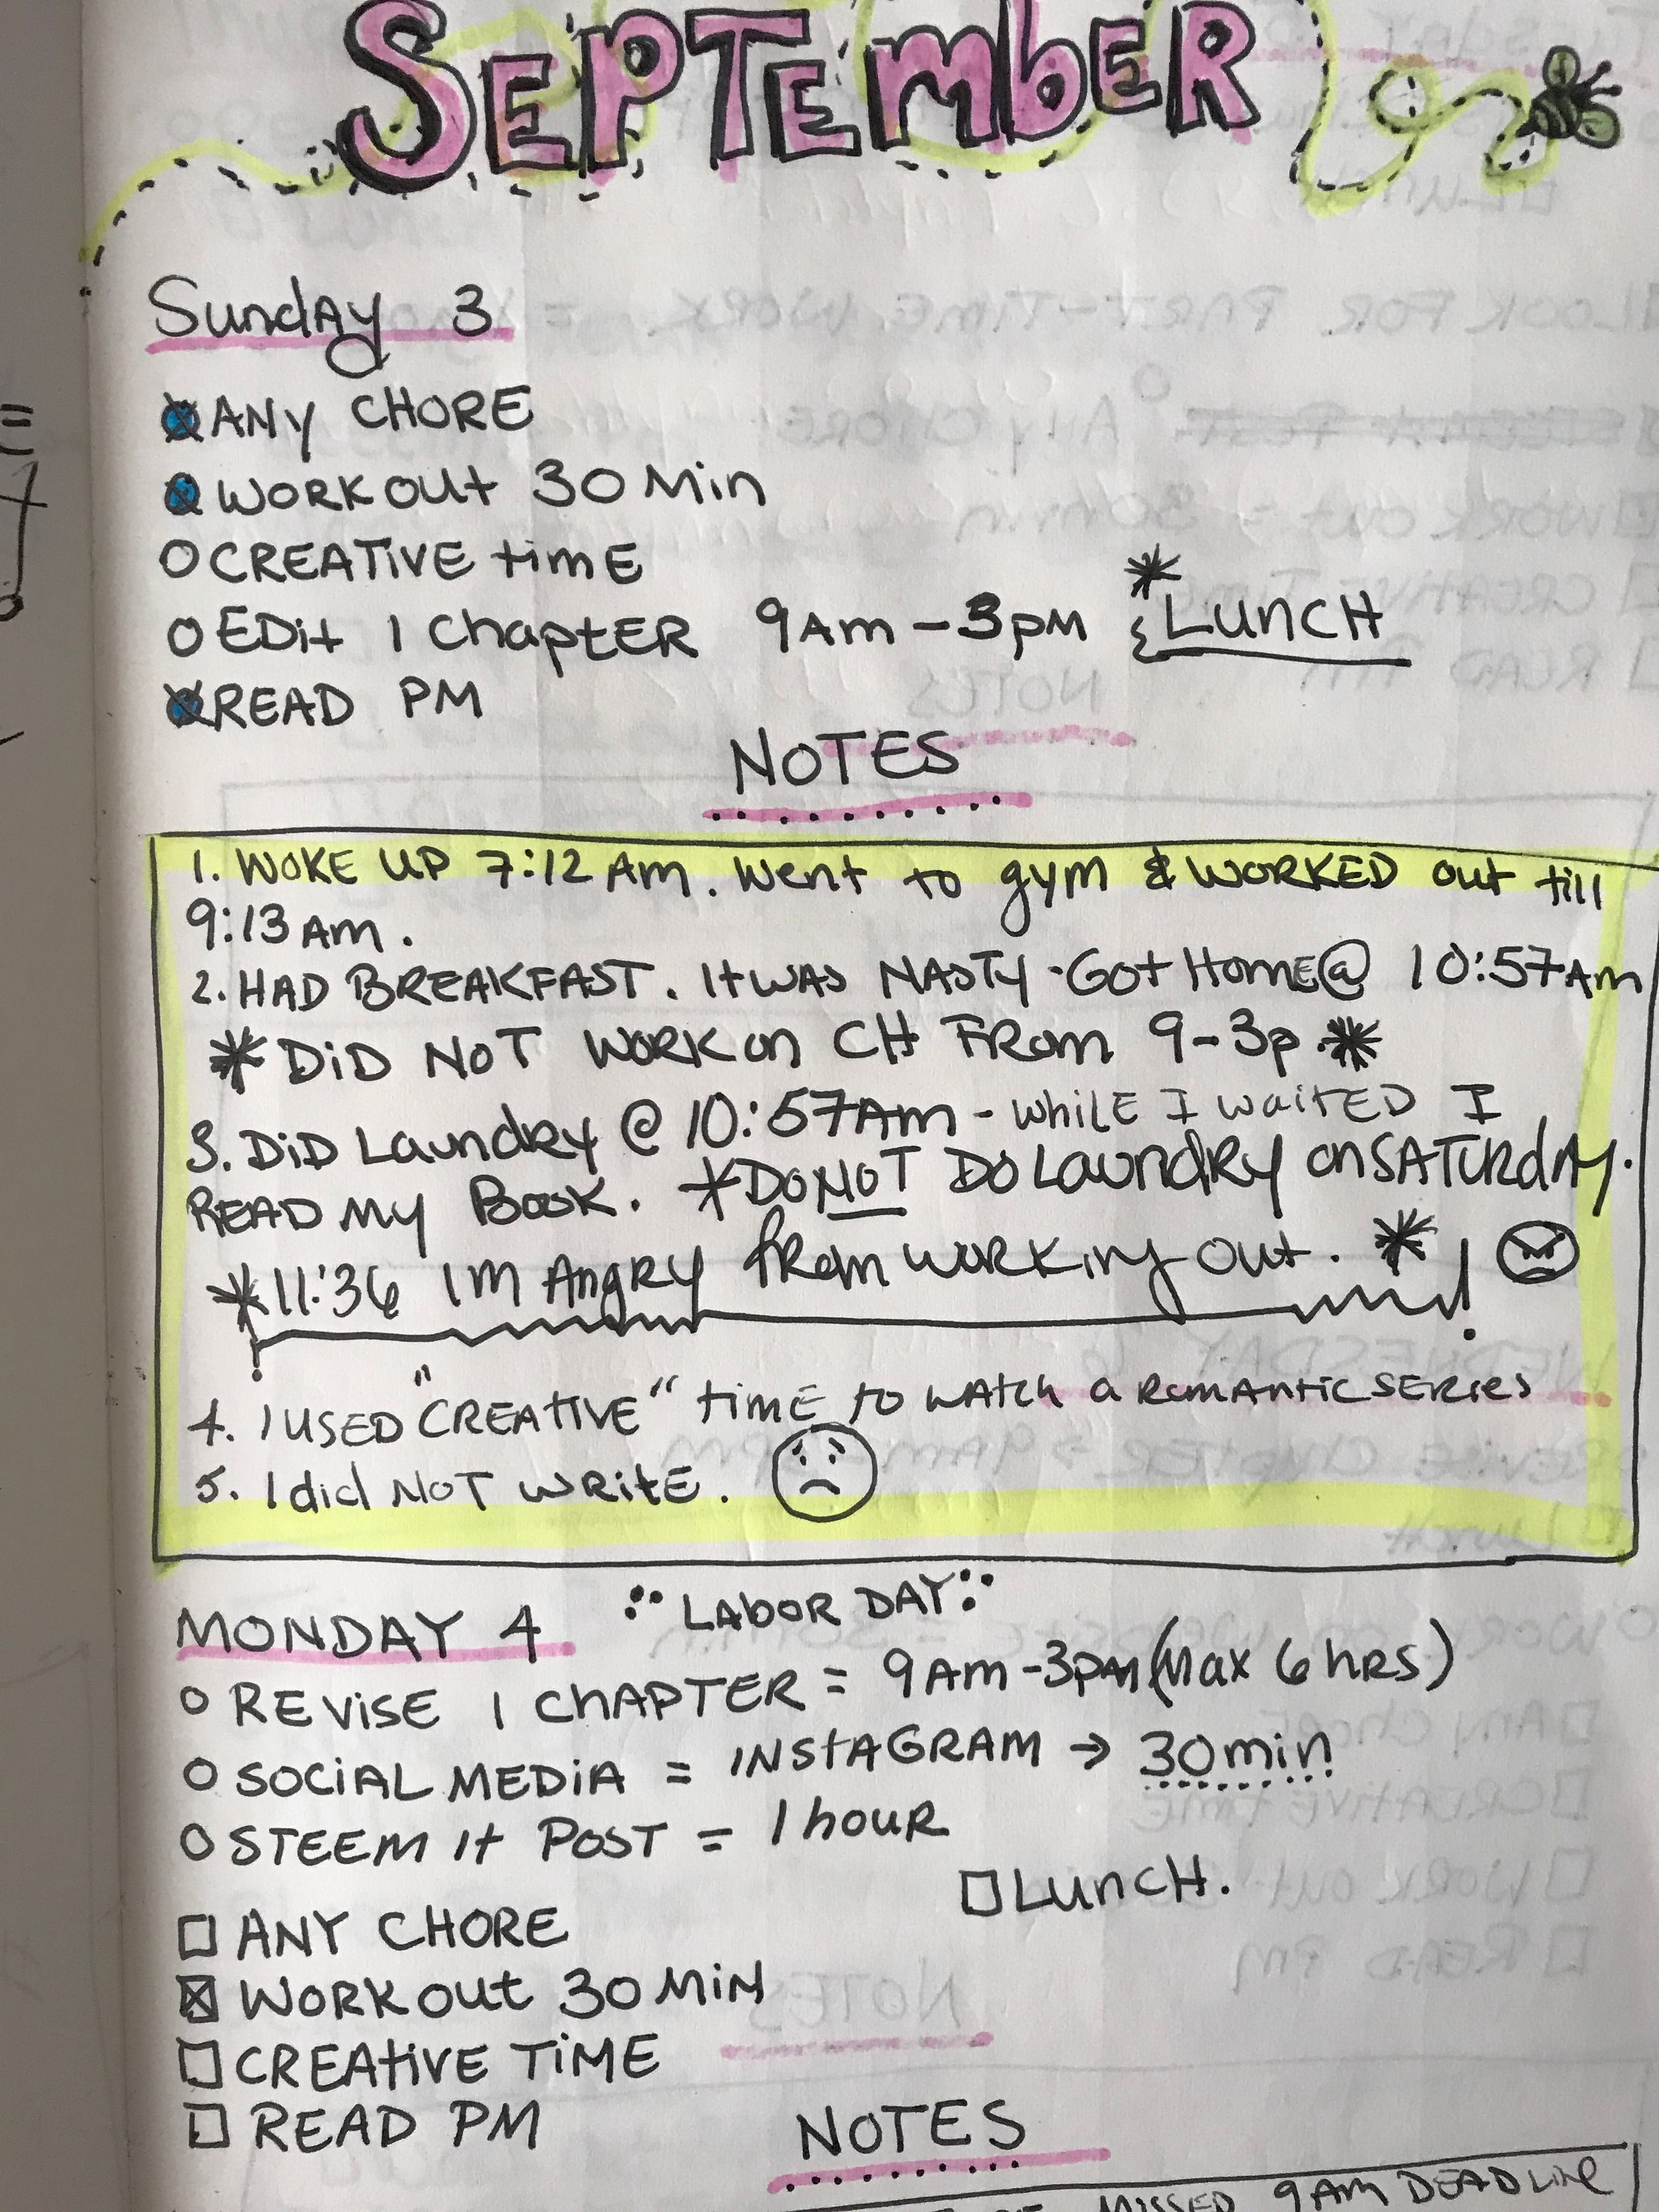 SEPTEMbER
Sunday 3
ANY CHORE
WORK out 30 Min
CREATIVE timE
EDit 1 ChaptER 9Am - 3pM * { LunCH
READ PM
NOTES
1. WOKE UP 7:12 Am. Went to gym & WORKED out till
9:13 Am.
2. HAD BREAKFAST. It WAS NASTY - Got HomE @ 10:57 Am
* DiD NOT WORK on CH FRom 9-3p. *
3. DiD Laundry @ 10:57 Am - whilE I waitED I
READ My Book. * DO NOT DO Laundry on SATURdAy.
* 11:36 IM AngRy fRom working out. *
4. I USED "CREATIVE" timE to watch a RomAntic SERIEs
5. I did NOT WRitE.
MONDAY 4 LAboR DAY
REViSE 1 ChAPTER = 9 Am - 3pm (Max 6 hRS)
SOCiAL MEDiA = INStAGRAM → 30min
STEEM It POST = 1 houR
LunCH.
ANY CHORE
WORK out 30 MiN
CREAtiVE TiME
READ PM
NOTES
MISSED 9AM DEADLINE